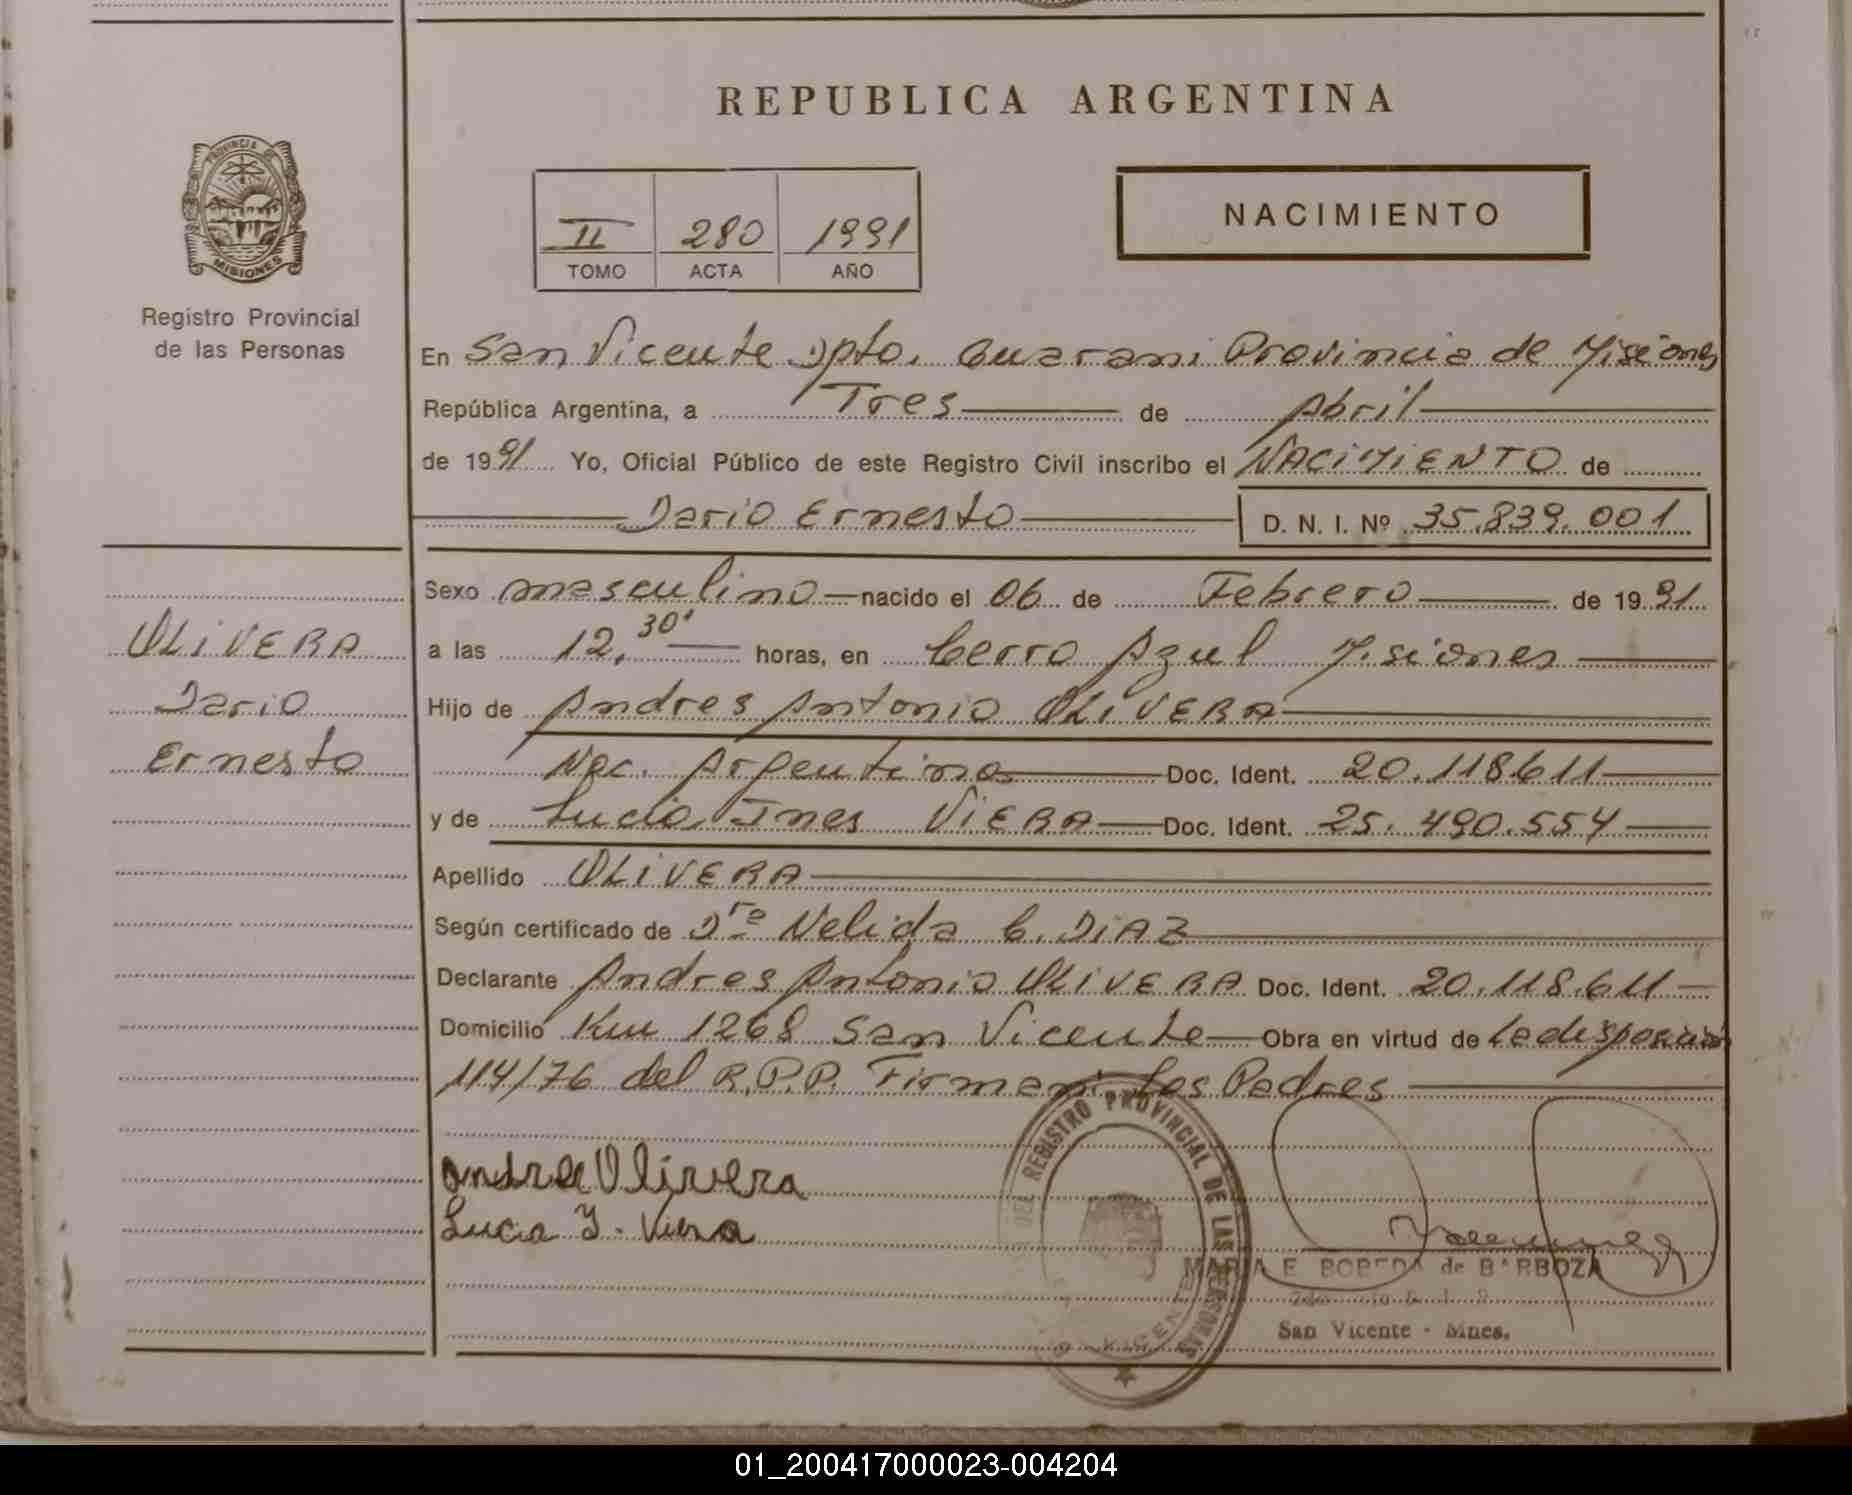 REPUBLICA ARGENTINA
PROVINCIA DE
MISIONES
Registro Provincial
de las Personas
II 280 1991
TOMO ACTA AÑO
NACIMIENTO
En San Vicente Dpto. Guarani Provincia de Misiones
República Argentina, a Tres de Abril
de 1991 Yo, Oficial Público de este Registro Civil inscribo el NACIMIENTO de
Dario Ernesto D. N. I. Nº 35.839.001
Sexo masculino nacido el 06 de Febrero de 1991
OLIVERA
Dario
Ernesto
a las 12,30' horas, en Cerro Azul Misiones
Hijo de Andres Antonio OLIVERA
Nac. Argentinos Doc. Ident. 20.118.611
y de Lucia Ines VIERA Doc. Ident. 25.490.554
Apellido OLIVERA
Según certificado de Dra Nelida C. DIAZ
Declarante Andres Antonio OLIVERA Doc. Ident. 20.118.611
Domicilio Km 1268 San Vicente Obra en virtud de la disposición
114/76 del R.P.P. Firman: Los Padres
Andres Olivera
Lucia I. Viera
DEL REGISTRO PROVINCIAL DE LAS PERSONAS
VICENTE
MARIA E. BOBEDA de BARBOZA
San Vicente - Mnes.
01_200417000023-004204